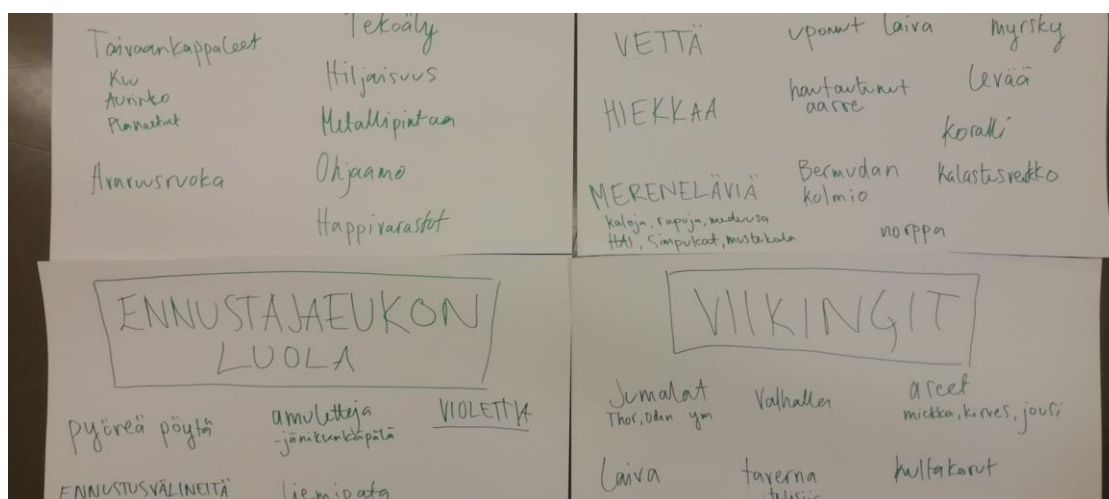 Taivaankappaleet
Kuu
Aurinko
Planeetat
Avaruusruoka
Tekoäly
Hiljaisuus
Metallipintaa
Ohjaamo
Happivarastot
VETTÄ
HIEKKAA
MERENELÄVIÄ
kaloja, rapuja, meduusa
HAI, Simpukat, mustekala
uponnut laiva
hautautunut
aarre
Bermudan
kolmio
norppa
myrsky
levää
koralli
kalastusverkko
ENNUSTAJAEUKON
LUOLA
pyöreä pöytä
ENNUSTUSVÄLINEITÄ
amuletteja
-jäniksenkäpälä
liemipata
VIOLETTIA
VIIKINGIT
Jumalat
Thor, Odin ym
Laiva
Valhalla
taverna
aseet
miekka, kirves, jousi
kultakorut